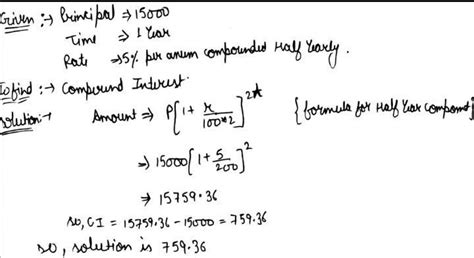 Given :→ Principal → 15000
Time → 1 Year
Rate → 5% per anum compounded Half Yearly.
To find :→ Compound Interest.
Solution :→ Amount ⇒ P[1 + r/100*2]^2t {formula for Half Year compound}
⇒ 15000[1 + 5/200]^2
⇒ 15759.36
so, CI = 15759.36 - 15000 = 759.36
so, solution is 759.36